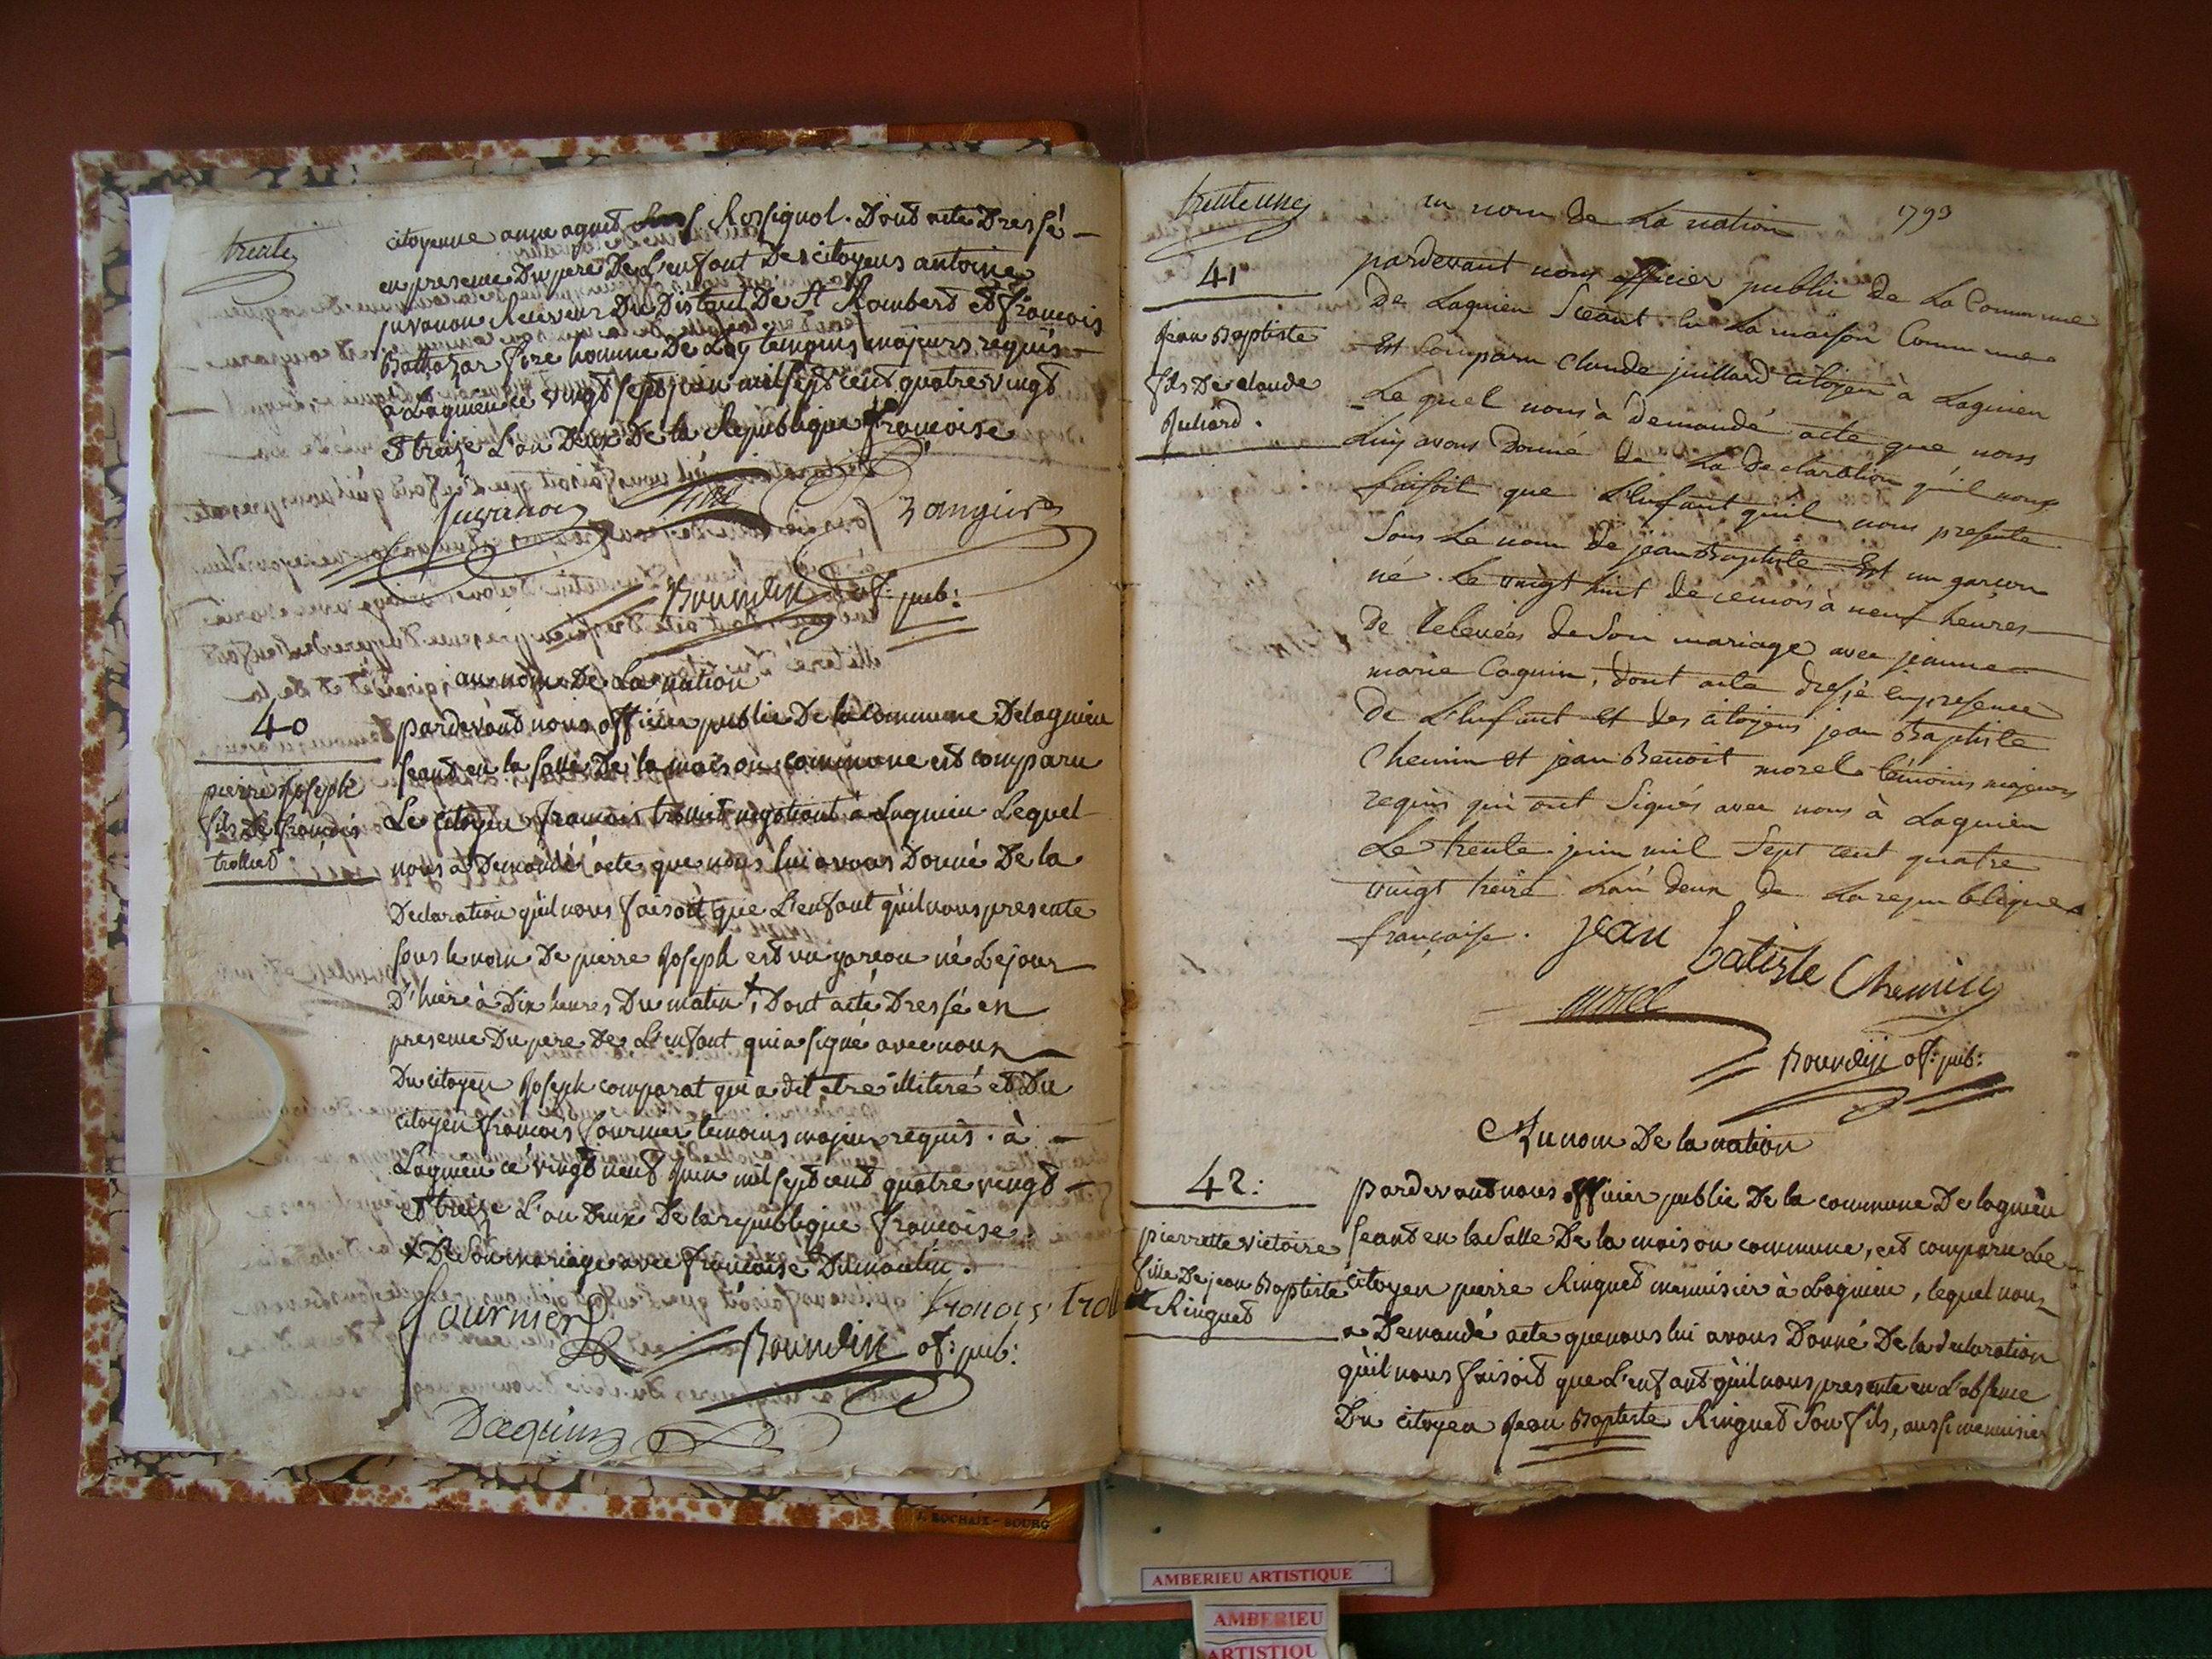 trente
citoyenne anne agnes Rossignol. Dont acte Dressé
en presence Du pere De L'enfant Des citoyens antoine
juvanon Receveur Du District De St Rambert et françois
Balthazar sire homme De Loy temoins majeurs requis
à Lagnieu ce vingt sept juin mil sept cent quatre vingt
et treize L'an Deux De la Republique françoise
juvanon
Bourdin of: pub:
au nom De La nation
40
pierre joseph
fils De françois
trolliet
pardevant nous officier public De la commune De lagnieu
seant en la salle De la maison commune est comparu
Le citoyen françois trolliet negotiant à Lagnieu Lequel
nous a Demandé acte que nous lui avons Donné De la
Declaration qu'il nous faisoit que L'enfant qu'il nous presente
sous le nom De pierre joseph est un garcon né Le jour
D'hiere à Dix heures Du matin +, Dont acte Dressé en
presence Du pere De L'enfant qui a signé avec nous
Du citoyen joseph comparat qui a dit etre illiteré et Du
citoyen françois fournier temoins majeurs requis. à
Lagnieu ce vingt neuf juin mil sept cent quatre vingt
et treize L'an Deux De la republique françoise.
+ De son mariage avec françoise Dumoulin.
fournier
francois trol
Bourdin of: pub:
Daguin
trente une
au nom de La nation 1793
41
jean Baptiste
fils De claude
Juliard.
pardevant nous officier public de La Commune
de Lagnieu Seant en La maison Commune
Est Comparu claude juillard citoyen à Lagnieu
Le quel nous à demandé acte que nous
Luy avons Donné de La declaration qu'il nous
faisoit que L'enfant qu'il nous presente
Sous Le nom de jean Baptiste Est un garcon
né Le vingt huit de ce mois à neuf heures
de Relevées de Son mariage avec jeanne
marie Cagnin, dont acte dressé en presence
de L'enfant et des citoyens jean Baptiste
Chemin et jean Benoit morel témoins majeurs
requis qui ont Signés avec nous à Lagnieu
Le trente juin mil Sept cent quatre
vingt treize L'an deux de La republique
française.
jean batiste Chemin
morel
Bourdin of: pub:
Au nom De la nation
42:
pierrette victoire
fille De jean Baptiste
Ringuet
pardevant nous officier public De la commune De lagnieu
seant en la Salle De la maison commune, est comparu Le
citoyen pierre Ringuet menuisier à Lagnieu, lequel nous
a Demandé acte que nous lui avons Donné De la declaration
qu'il nous faisoit que L'enfant qu'il nous presente en L'absence
Du citoyen jean Baptiste Ringuet Son fils, aussi menuisier
J. ROCHAIX - BOURG
AMBERIEU ARTISTIQUE
AMBERIEU
ARTISTIQU